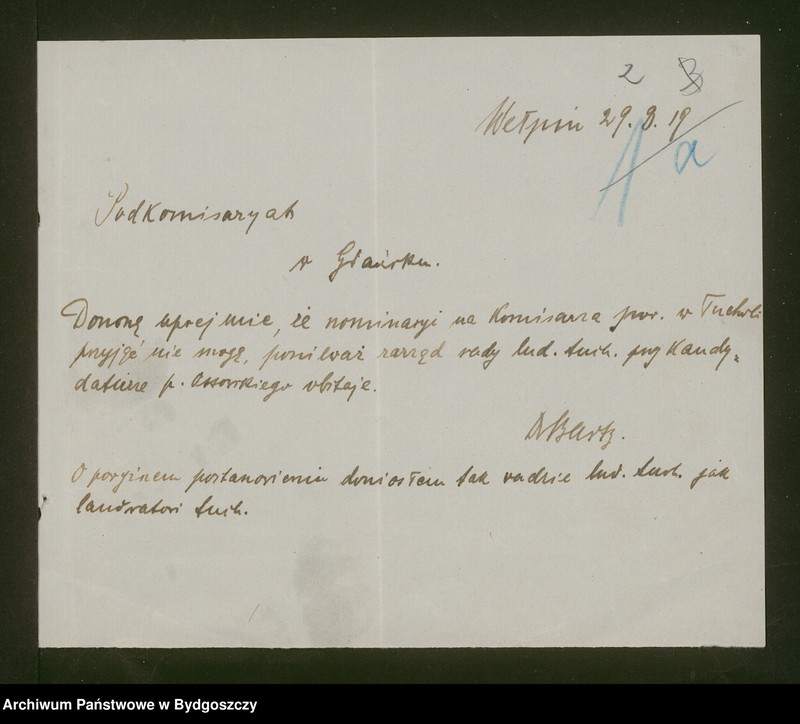 2 3
Wełpin 29. 3. 19
1 a
Podkomisaryat
w Gdańsku.
Donoszę uprzejmie, że nominacyi na Komisarza pow. w Tucholi
przyjąć nie mogę, ponieważ zarząd rady lud. tuch. przy Kandy-
daturze p. Ossowskiego obstaje.
Dr Bartz.
O powyższem postanowieniu doniosłem tak radzie lud. tuch. jak
landratowi tuch.
Archiwum Państwowe w Bydgoszczy